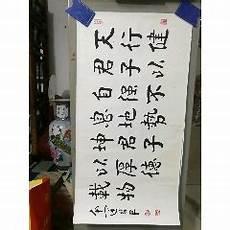 天行健
君子以
自强不
息地势
坤君子
以厚德
载物